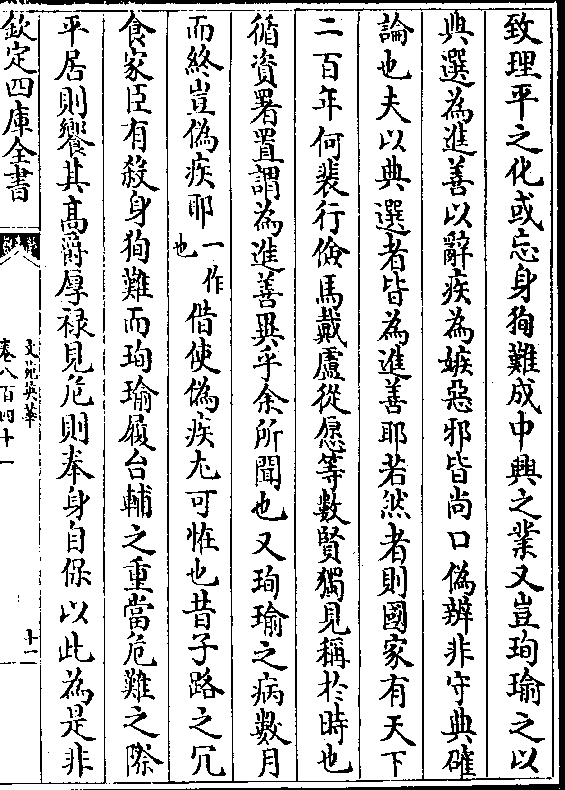 致理平之化或忘身狥難成中興之業又豈珣瑜之以
典選為進善以辭疾為嫉惡邪皆尚口偽辨非守典確
論也夫以典選者皆為進善耶若然者則國家有天下
二百年何裴行儉馬戴盧從愿等數賢獨見稱於時也
循資署置謂為進善異乎余所聞也又珣瑜之病數月
而終豈偽疾耶一作也借使偽疾尤可恠也昔子路之冗
食家臣有殺身狥難而珣瑜履台輔之重當危難之際
平居則饗其高爵厚禄見危則奉身自保以此為是非
欽定四庫全書
文苑英華
卷八百四十一
十一